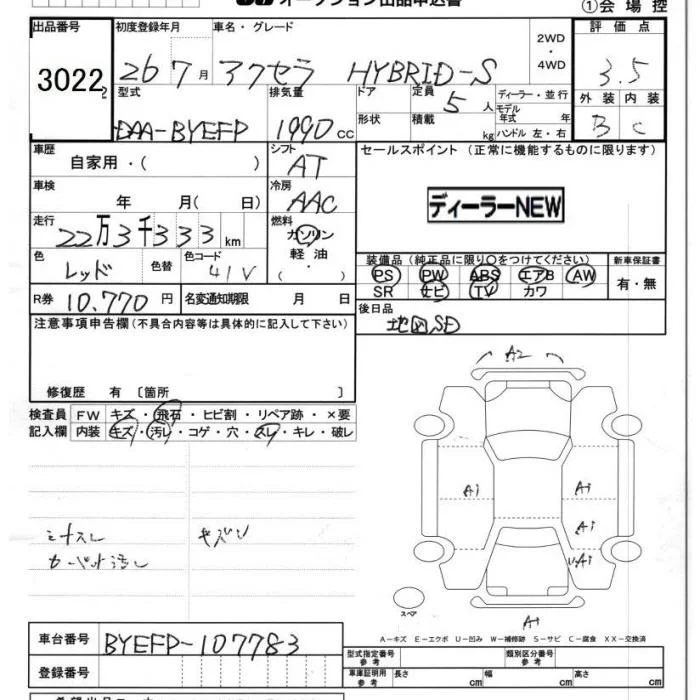 オークション出品申込書
①会場控
出品番号
3022 2
初度登録年月
26 7月
車名・グレード
アクセラ HYBRID-S
2WD
・
4WD
評価点
3.5
外装 内装
B C
型式
DAA-BYEFP
排気量
1990 cc
ドア
形状
定員 5 人
積載 kg
ディーラー・並行
モデル
年式 年
ハンドル 左・右
車歴
自家用・( )
シフト
AT
セールスポイント (正常に機能するものに限ります)
ディーラーNEW
車検
年 月( 日)
冷房
AAC
走行
22万3千333km
燃料
ガソリン
軽油
( ・ )
色
レッド
色替
色コード
41V
装備品(純正品に限り○をつけてください)
PS PW ABS エアB AW
SR ナビ TV カワ
新車保証書
有・無
R券 10.770円
名変通知期限 月 日
後日品
地図SD
注意事項申告欄(不具合内容等は具体的に記入して下さい)
修復歴 有〔箇所 〕
検査員
記入欄
FW キズ・飛石・ヒビ割・リペア跡・×要
内装 キズ・汚レ・コゲ・穴・スレ・キレ・破レ
シートスレ キズシ
カーペット汚し
A2
A1
A1
A1
A1
A1
スペア
A-キズ E-エクボ U-凹み W-補修跡 S-サビ C-腐食 XX-交換済
車台番号
BYEFP-107783
登録番号
型式指定番号
参考
類別区分番号
参考
車庫証明用
参考
長さ cm
幅 cm
高さ cm